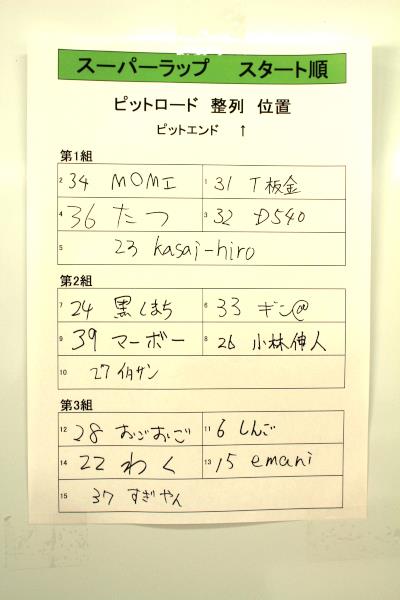 スーパーラップ スタート順
ピットロード 整列 位置
ピットエンド ↑
第1組
2 34 MOMI 1 31 T板金
4 36 たつ 3 32 D540
5 23 kasai-hiro
第2組
7 24 黒くまち 6 33 ギン@
9 39 マーボー 8 26 小林伸人
10 27 サン
第3組
12 28 おごおご 11 6 しんご
14 22 わく 13 15 emani
15 37 すぎやん